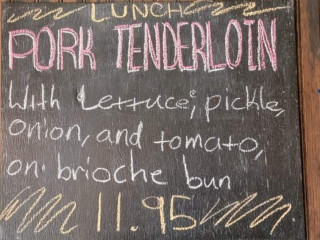 LUNCH
PORK TENDERLOIN
With Lettuce, pickle,
onion, and tomato,
on brioche bun
11.95